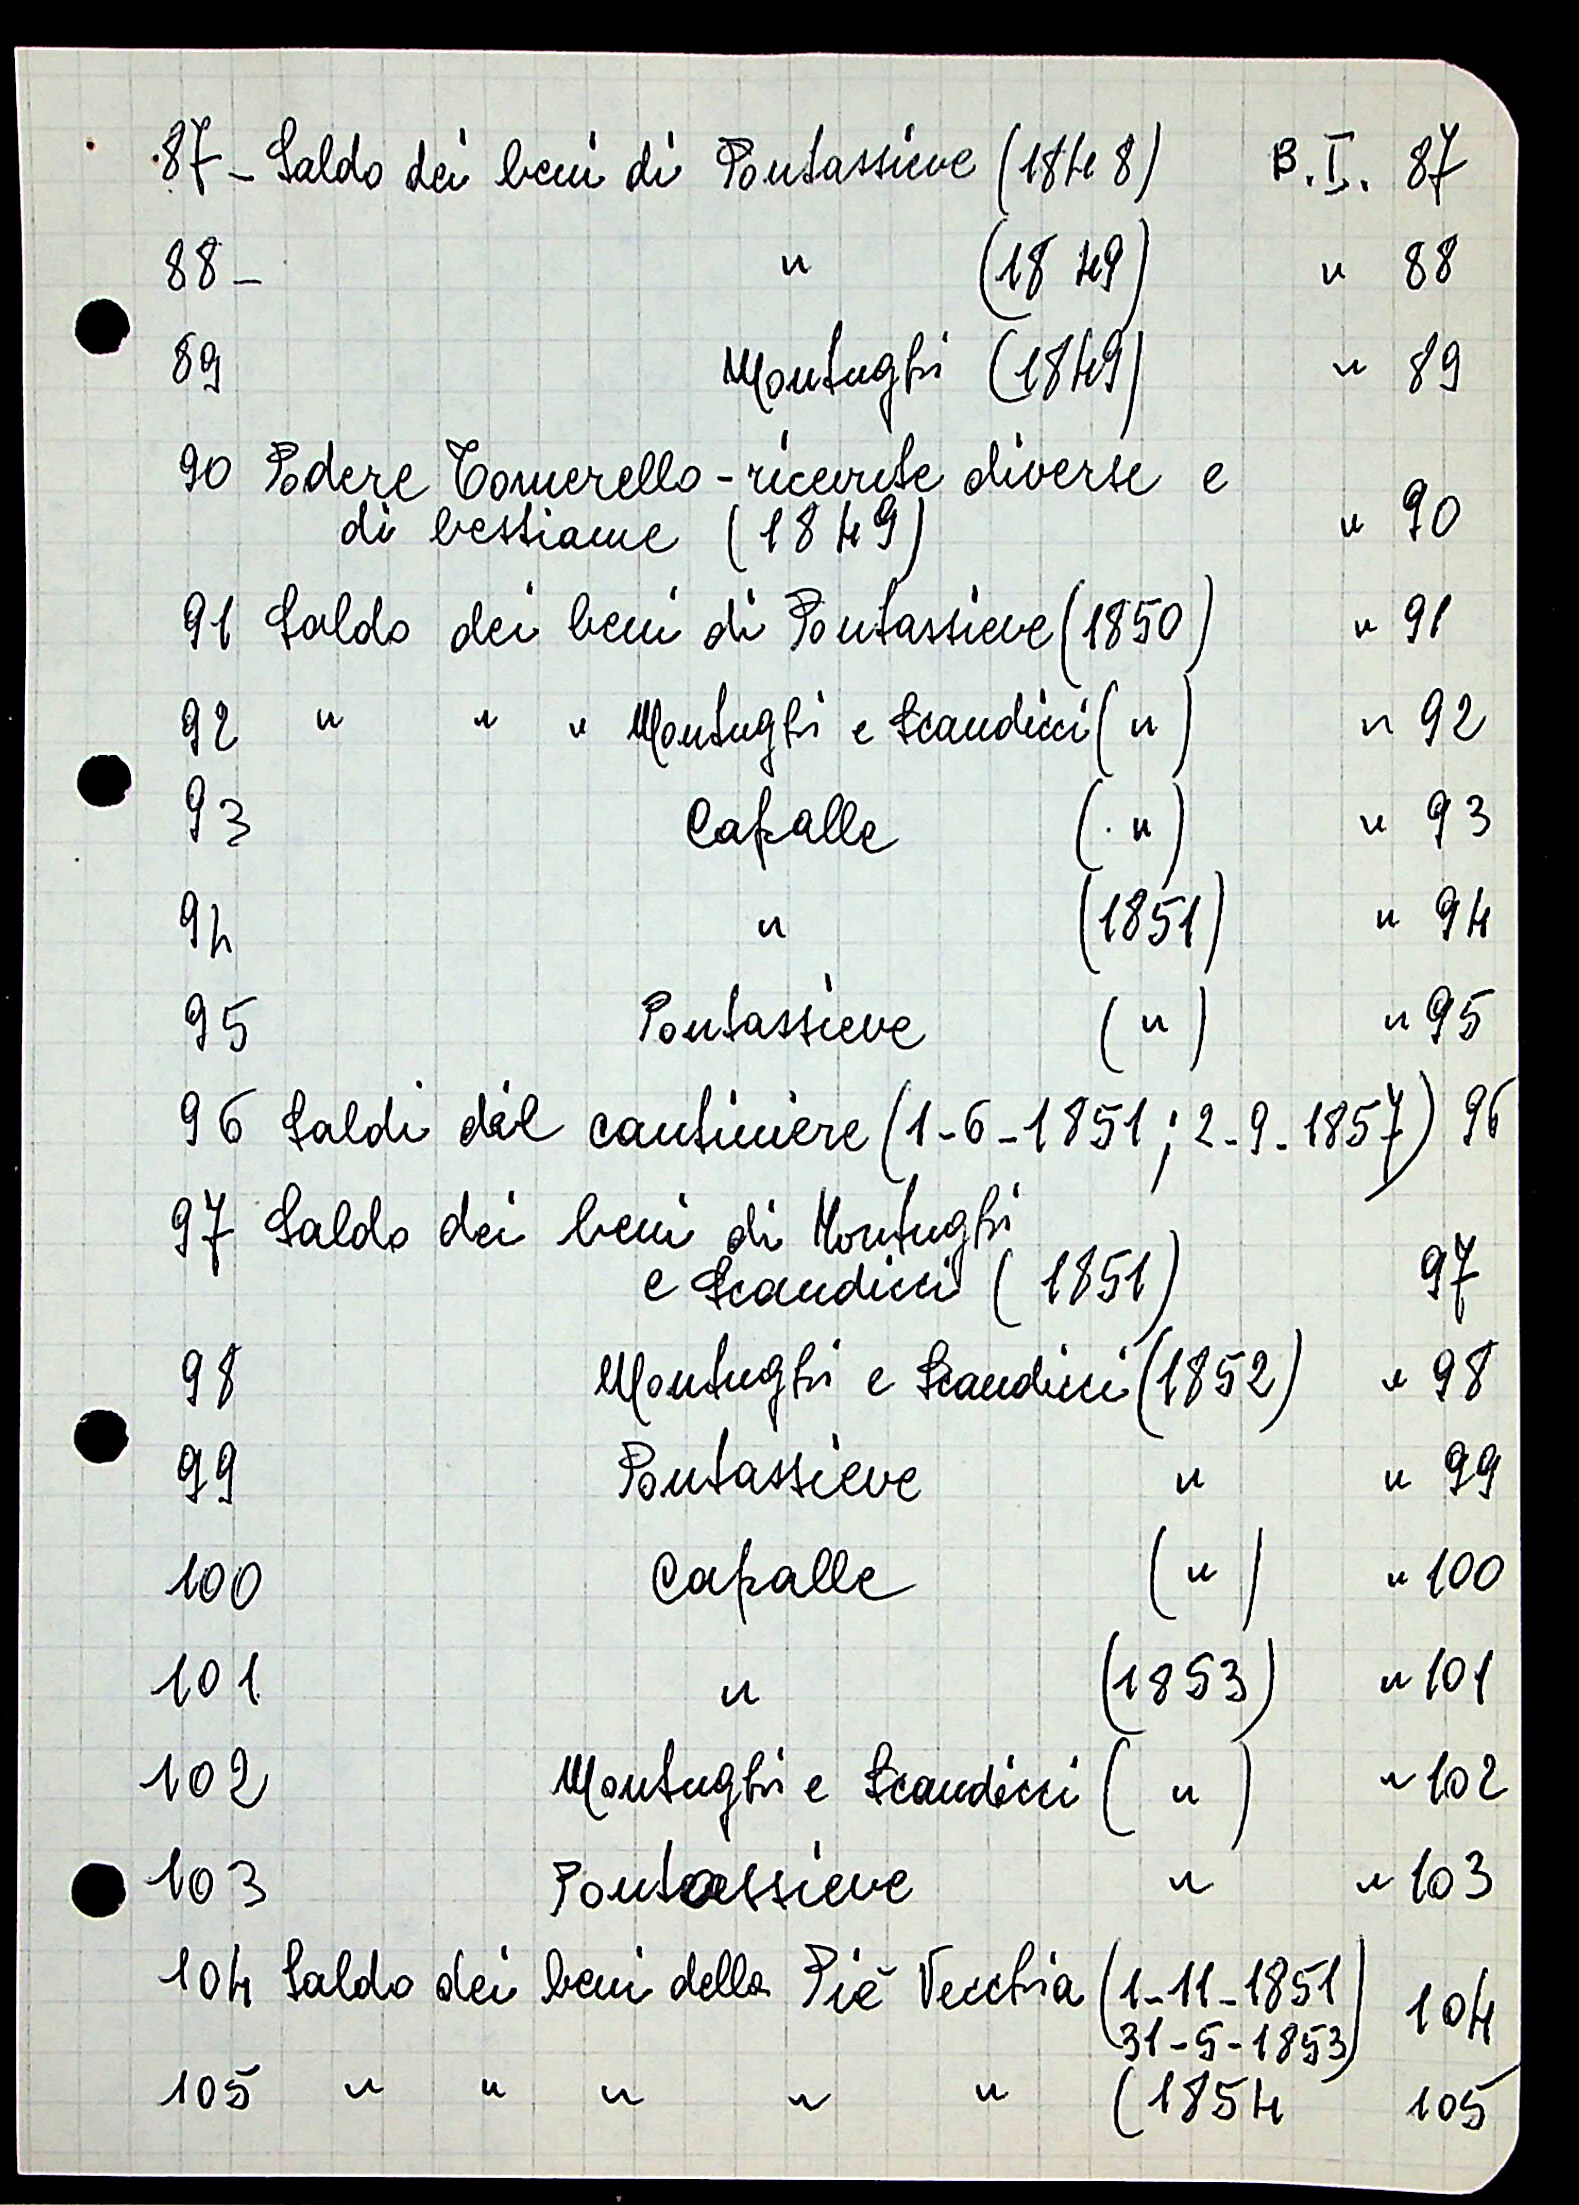 87- Saldo dei beni di Pontassieve (1848) B.I. 87
88- " (1849) " 88
89 Montughi (1849) " 89
90 Podere Tomerello - ricevute diverse e
di bestiame (1849) " 90
91 Saldo dei beni di Pontassieve (1850) " 91
92 " " " Montughi e Scandicci ( " ) " 92
93 Capalle ( " ) " 93
94 " (1851) " 94
95 Pontassieve ( " ) " 95
96 Saldi del cantiniere (1-6-1851; 2-9-1857) 96
97 Saldo dei beni di Montughi
e Scandicci (1851) 97
98 Montughi e Scandicci (1852) " 98
99 Pontassieve " " 99
100 Capalle ( " ) " 100
101 " (1853) " 101
102 Montughi e Scandicci ( " ) " 102
103 Pontassieve " " 103
104 Saldo dei beni della Piè Vecchia (1-11-1851
31-5-1853) 104
105 " " " " " (1854 105